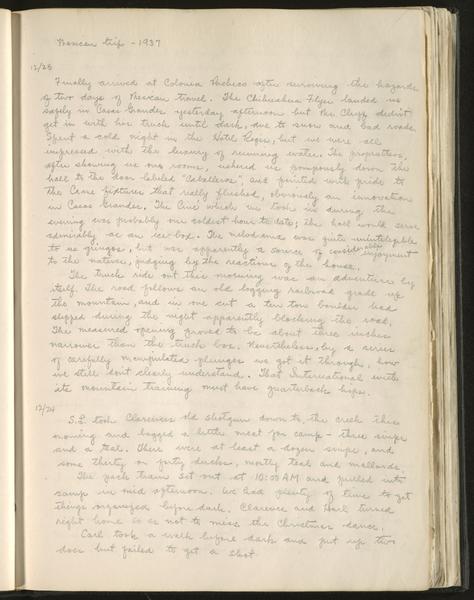 Mexican trip - 1937
12/23
Finally arrived at Colonia Pacheco after surviving the hazards
of two days of Mexican travel. The Chihuahua Flyer landed us
safely in Casas Grandes yesterday afternoon but the didn't
get in with her truck until dark, due to snow and bad roads.
Spent a cold night in the Hotel but we were all
impressed with the luxury of running water. The proprietress,
after showing us our rooms, ushered us pompously down the
hall to the door labeled "Caballeros", and pointed with pride to
the Crane fixtures that really flushed, obviously an innovation
in Casas Grandes. The Ciné which we took in during the
evening was probably our coldest hour to date; the hall would serve
admirably as an ice-box. The melodrama was quite unintelligible
to us gringos, but was apparently a source of considerable enjoyment
to the natives, judging by the reactions of the house.
The truck ride out this morning was an adventure by
itself. The road follows an old logging railroad grade up
the mountain, and in one cut a ten ton boulder had
slipped during the night apparently blocking the road.
The measured opening proved to be about three inches
narrower than the truck box. Nevertheless, by a series
of carefully manipulated plunges we got it through, how
we still don't clearly understand. That International with
its mountain training must have quarterback hips.
12/24
S.L. took Clarence's old shotgun down to the creek this
morning and bagged a little meat for camp - three snipe
and a teal. There were at least a dozen snipe, and
some thirty or forty ducks, mostly teal and mallards.
The pack train set out at 10:00 AM and pulled into
camp in mid afternoon. We had plenty of time to get
things organized before dark. Clarence and turned
right home so as not to miss the Christmas dance.
Carl took a walk before dark and put up two
does but failed to get a shot.